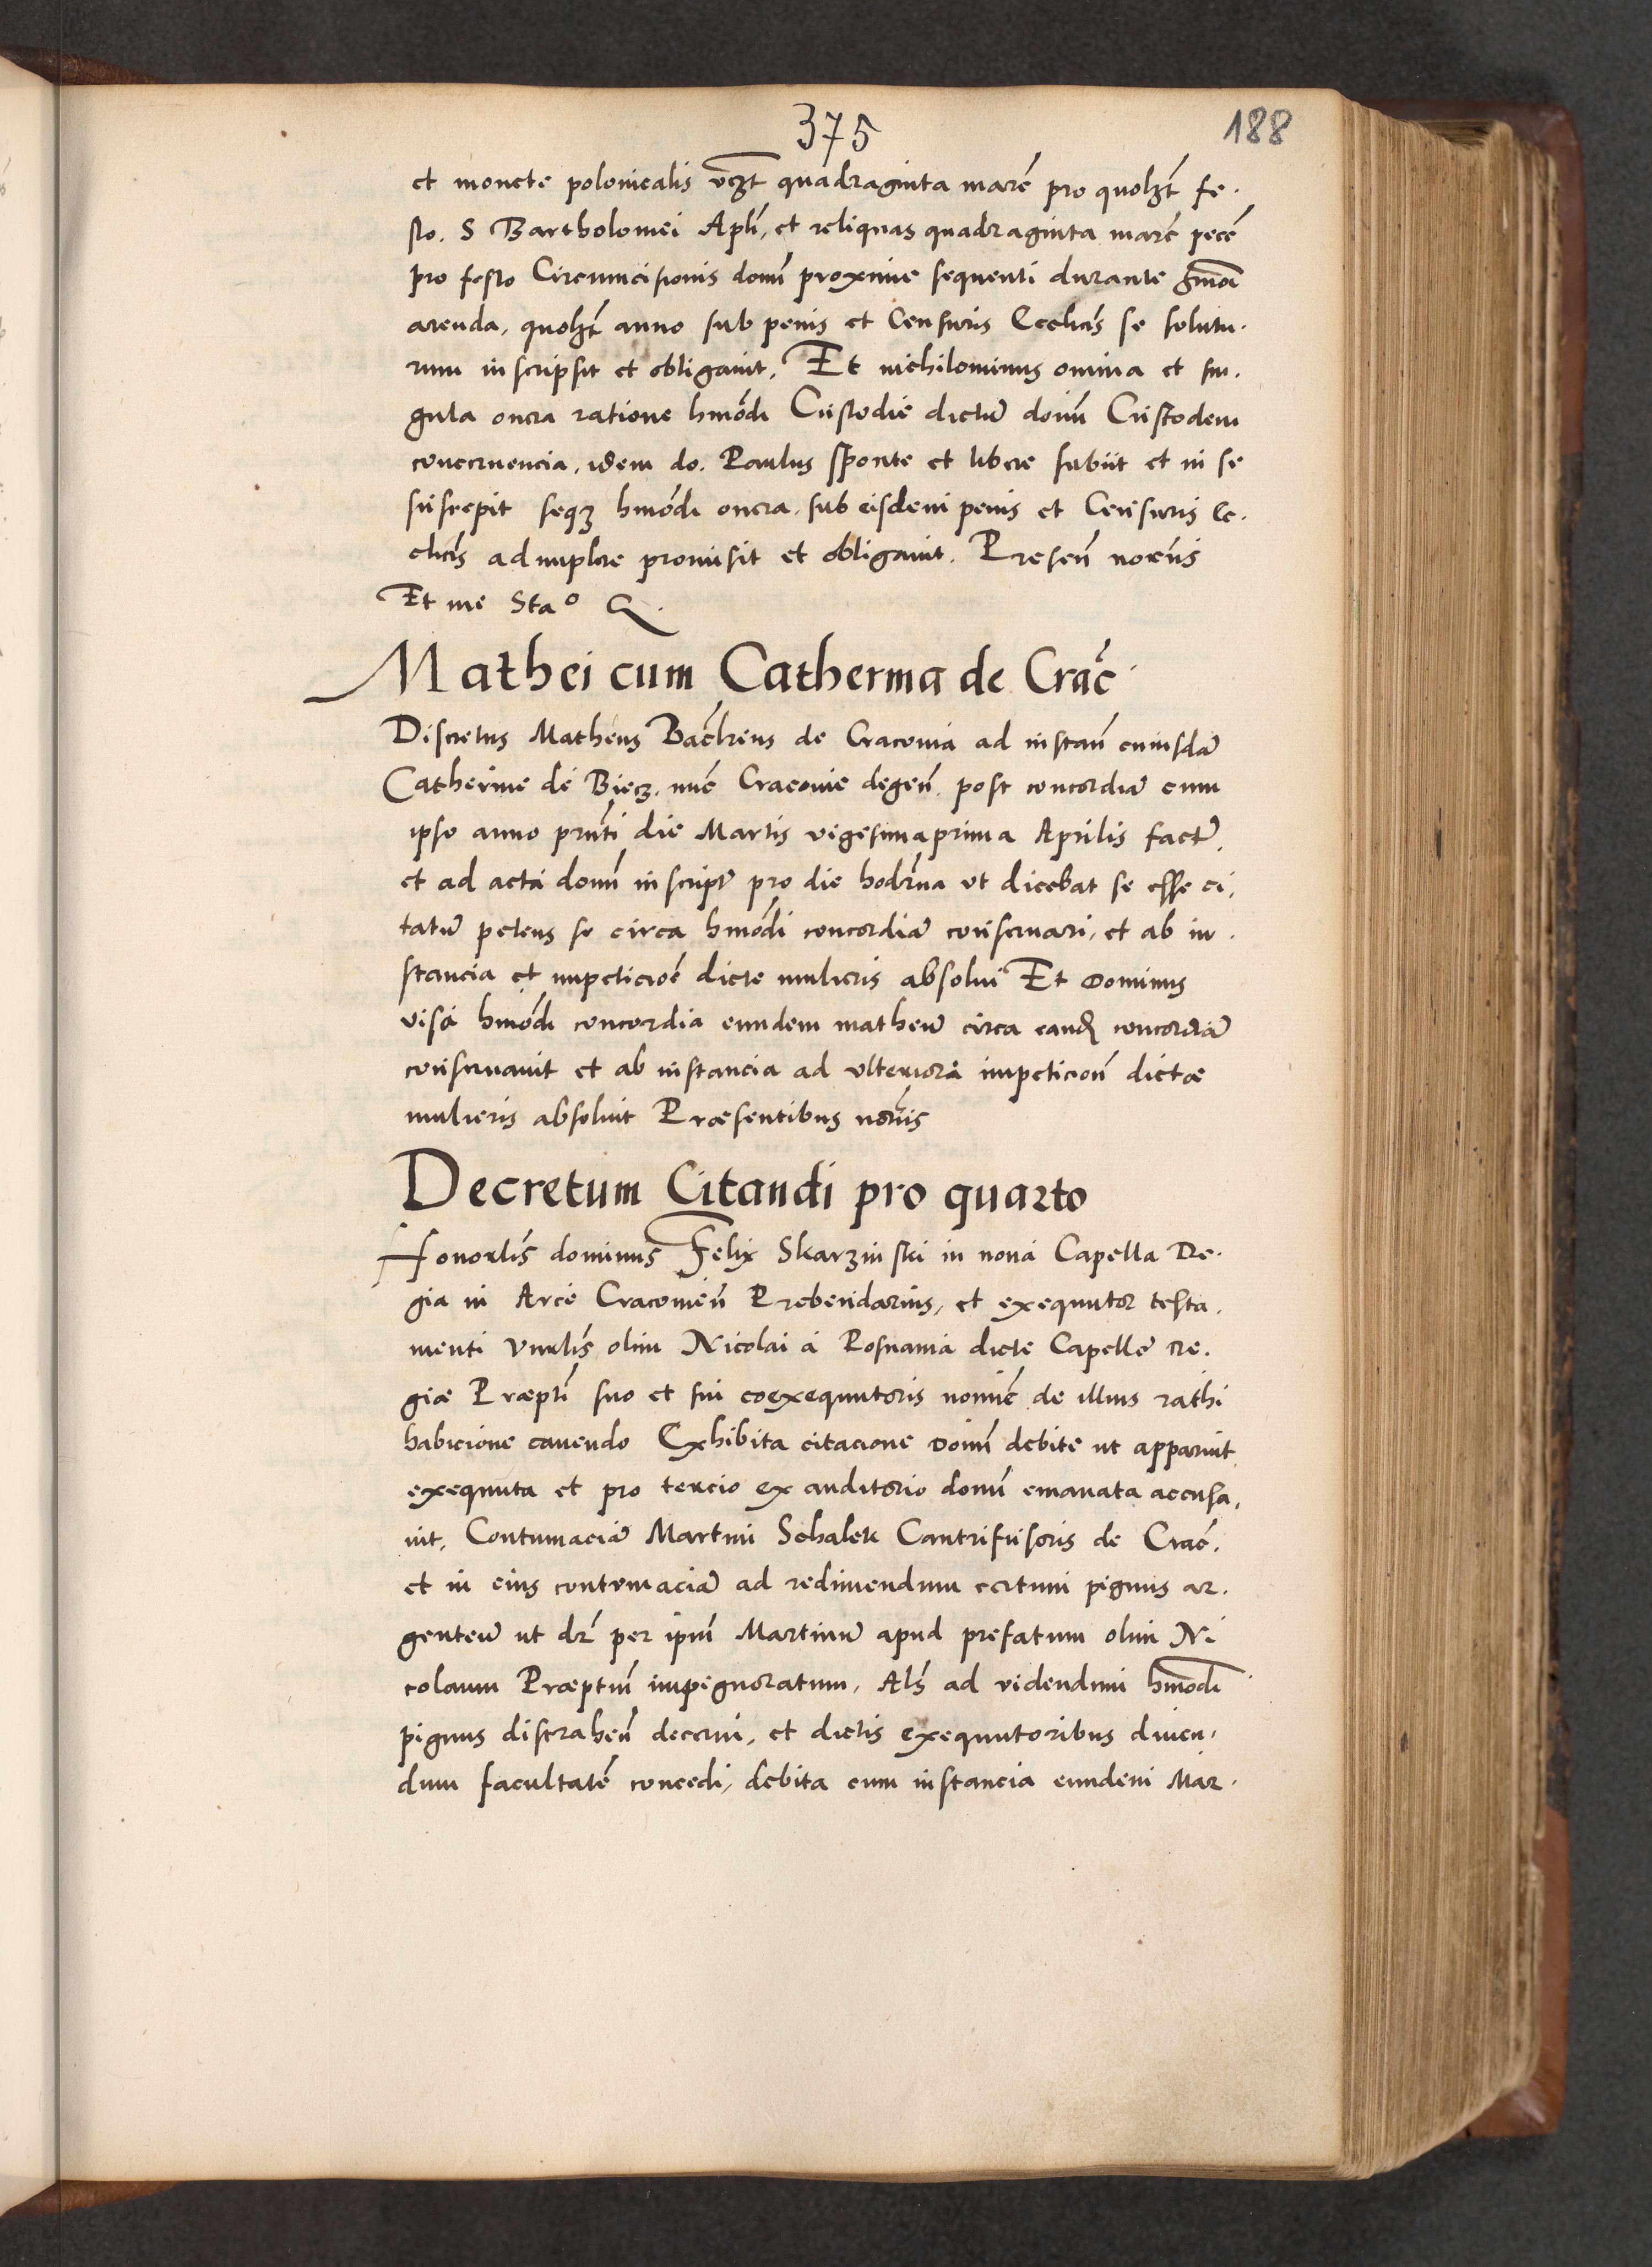 375
188
et monete polonicalis vcꝫt quadraginta marc̃ pro quolꝫt fe-
sto. S Bartholomei Apli, et reliquas quadraginta marc̃ pecc̃
pro festo Circumcisionis domĩ proxime sequenti durante hmõi
arenda, quolꝫt anno sub penis et Censuris Ecclicis se solutu-
rum inscripsit et obligauit. Et nichilominus omnia et sin-
gula onera ratione hmõdi Custodie dictũ domũ Custodem
concernencia, idem do. Paulus sponte et libere subiit et in se
suscepit seqꝫ hmõdi onera, sub eisdem penis et Censuris Ec-
clicis adimplere promisit et obligauit. Presen̄ norijs
Et me Sta° Q.
Mathei cum Catherina de Crac̃
Discretus Matheus Baclrens de Cracouia ad instan̄ cuiusdã
Catherine de Biecz. nūc Cracouie degen̄. post concordiã cum
ipso anno prnti die Martis vigesimaprima Aprilis factã,
et ad acta domĩ inscriptã pro die hodr̃na vt dicebat se esse ci-
tatũ petens se circa hmõdi concordiã conseruari, et ab in-
stancia et impeticiõe dicte mulieris absolui Et Dominus
visa hmõdi concordia eundem matheũ circa eand̃ concordiã
conseruauit et ab instancia ad vlteriorã impeticion̄ dictæ
mulieris absoluit Præsentibus norijs
Decretum Citandi pro quarto
Honorlis dominus Felix Skarzinski in noua Capella Re-
gia in Arce Cracouien̄ Prebendarius, et exequutor testa-
menti Vnrlis olim Nicolai à Posnania dicte Capelle Re-
giæ Præpti suo et sui coexequutoris nomīe de illius rathi
habicione cauendo Exhibita citacione Domĩ debite ut apparuit
exequuta et pro tercio ex auditorio domĩ emanata accusa-
uit. Contumaciã Martini Schalek Cantrifusoris de Crac̃.
et in eius contumaciã ad redimendum certum pignus ar-
genteũ ut dr̃ per ipm̃ Martinũ apud prefatum olim Ni
colaum Præptum impignoratum, Als ad videndum hmõdi
pignus distrahen̄ decerni, et dictis exequutoribus diuen-
dum facultatē concedi, debita cum instancia eundem Mar-